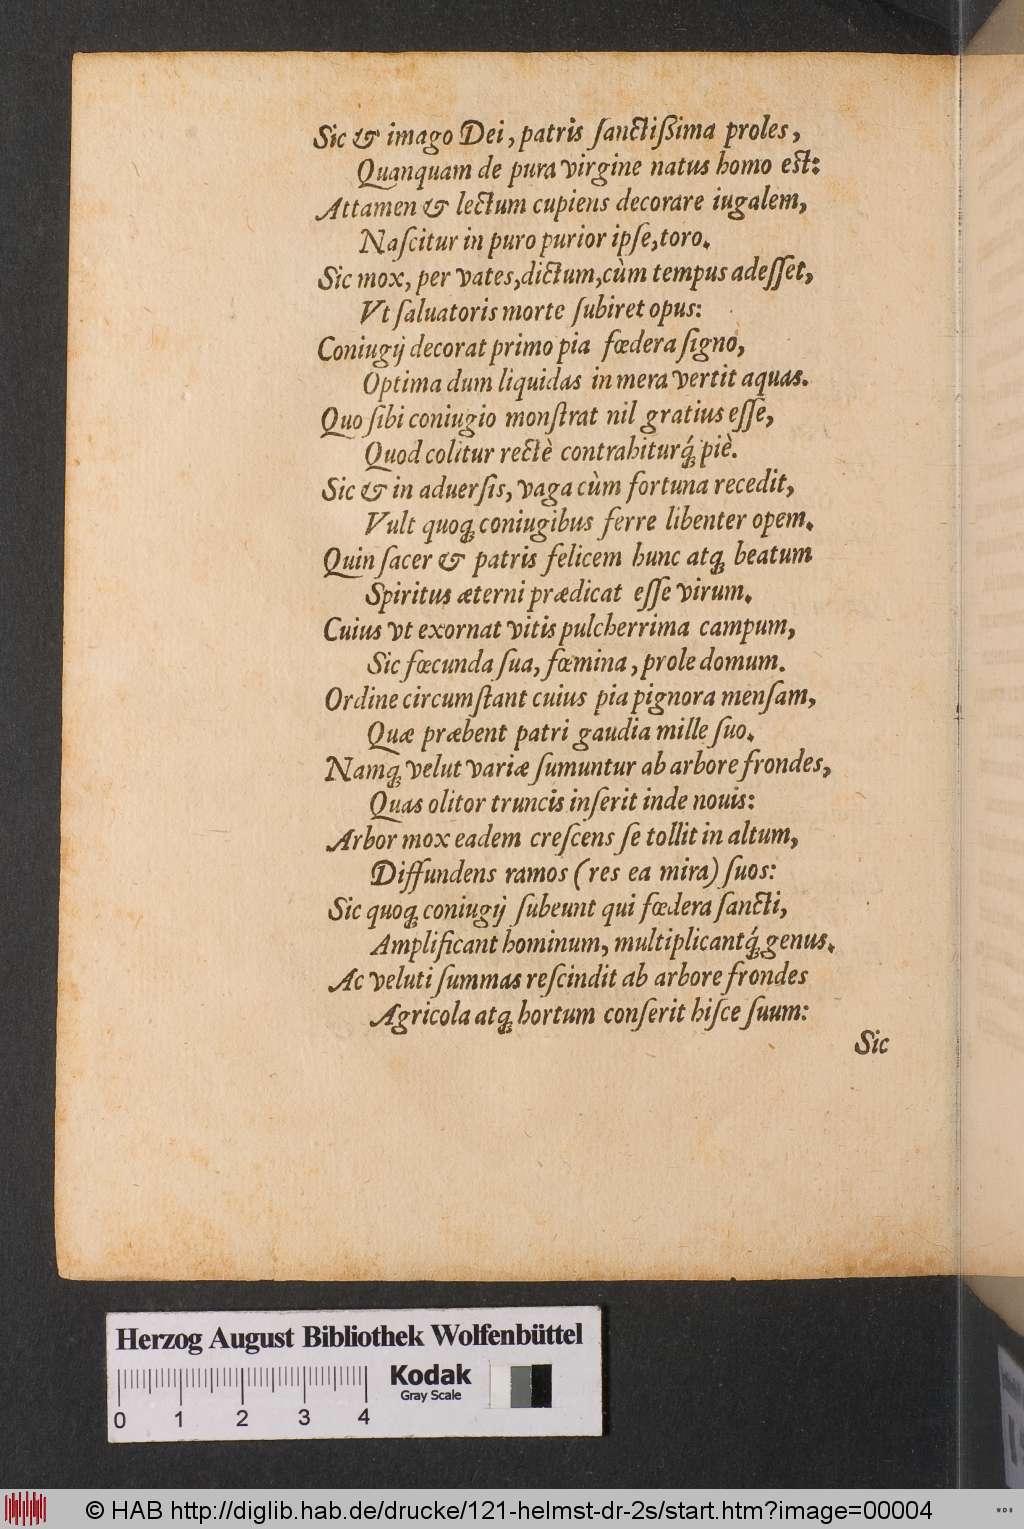 Sic & imago Dei, patris ſanctiſsima proles,
Quanquam de pura virgine natus homo est:
Attamen & lectum cupiens decorare iugalem,
Naſcitur in puro purior ipſe, toro.
Sic mox, per vates, dictum, cùm tempus adeſſet,
Vt ſaluatoris morte ſubiret opus:
Coniugij decorat primo pia fœdera ſigno,
Optima dum liquidas in mera vertit aquas.
Quo ſibi coniugio monſtrat nil gratius eſſe,
Quod colitur rectè contrahiturq́ꝫ piè.
Sic & in aduerſis, vaga cùm fortuna recedit,
Vult quoqꝫ coniugibus ferre libenter opem.
Quin ſacer & patris felicem hunc atqꝫ beatum
Spiritus æterni prædicat eſſe virum.
Cuius vt exornat vitis pulcherrima campum,
Sic fœcunda ſua, fœmina, prole domum.
Ordine circumſtant cuius pia pignora menſam,
Quæ præbent patri gaudia mille ſuo.
Namqꝫ velut variæ ſumuntur ab arbore frondes,
Quas olitor truncis inſerit inde nouis:
Arbor mox eadem creſcens ſe tollit in altum,
Diffundens ramos (res ea mira) ſuos:
Sic quoqꝫ coniugij ſubeunt qui fœdera ſancti,
Amplificant hominum, multiplicantq́ꝫ genus.
Ac veluti ſummas reſcindit ab arbore frondes
Agricola atqꝫ hortum conſerit hiſce ſuum:
Sic
Herzog August Bibliothek Wolfenbüttel
Kodak
Gray Scale
0 1 2 3 4
© HAB http://diglib.hab.de/drucke/121-helmst-dr-2s/start.htm?image=00004